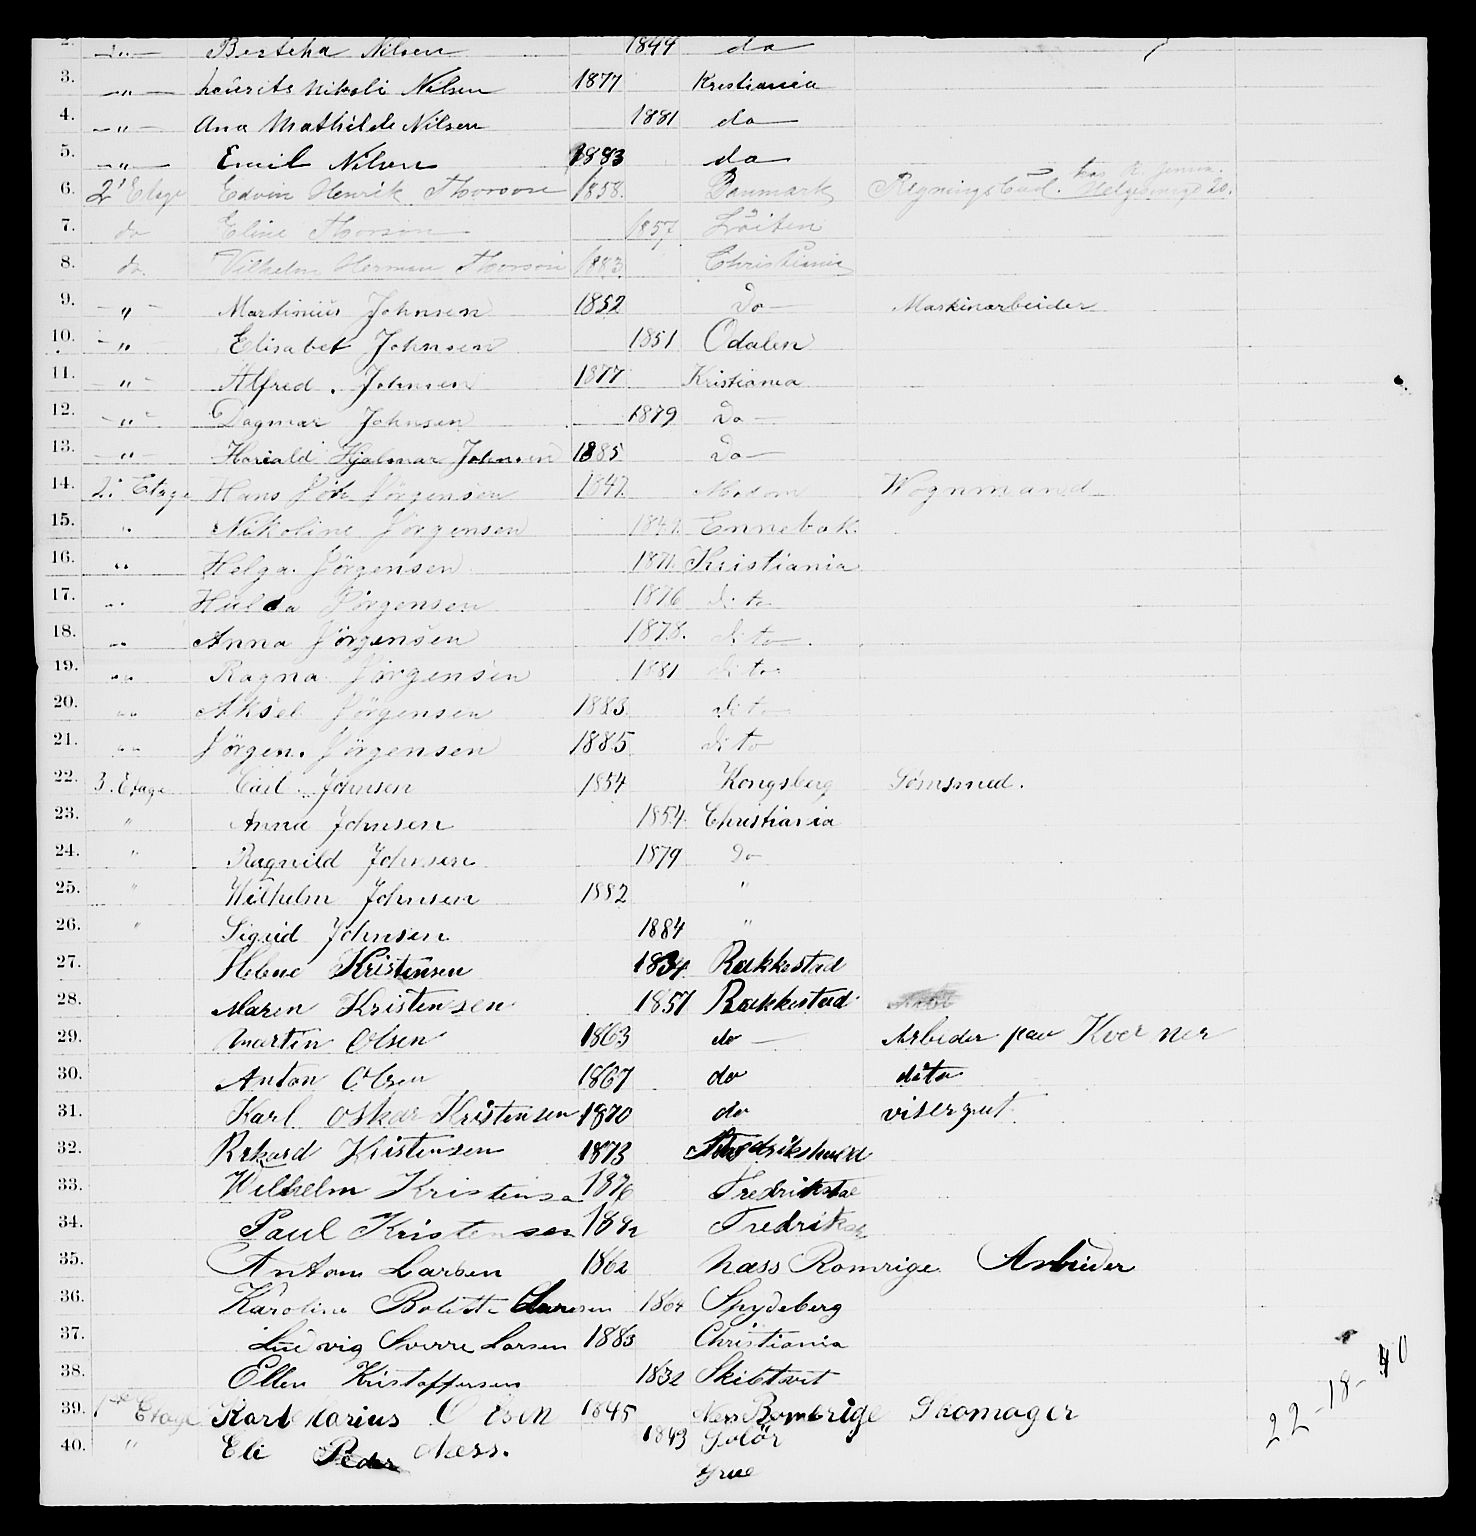 2. -"- Bertha Nilsen 1844 do
3. -"- Laurits Nikoli Nilsen 1877 Kristiania
4. -"- Ana Mathilde Nilsen 1881 do
5. -"- Emil Nilsen 1883 do
hos R. Jensen.
6. 2' Etage Edvin Henrik Thorson 1858. Danmark Regningsbud. Helgesensgd 20.
7. do Eline Thorson 1857. Löiten
8. do. Vilhelm Herman Thorson 1883. Christiania
9. " Martinius Johnsen 1852 Do Maskinarbeider
10. " Elisabet Johnsen 1851 Odalen
11. -"- Alfred. Johnsen 1877 Kristiania
12. -"- Dagmar Johnsen 1879 Do
13. -"- Harald Hjalmar Johnsen 1885 Do
14. 2. Etage Hans Joh Jörgensen 1847 Wognmand
15. " Nikoline Jörgensen 1842. Ennebak.
16. " Helga. Jörgensen 1871. Kristiania
17. " Hulda Jörgensen 1876 dito
18. " Anna Jörgensen 1878. dito.
19. " Ragna Jörgensen 1881 dito
20. " Aksel Jörgensen 1883 dito
21. " Jörgen. Jörgensen 1885 dito
22. 3. Etage Carl. Johnsen 1854 Kongsberg Sömsmed.
23. " Anna Johnsen 1854. Christiania
24. " Ragnild Johnsen 1879 Do
25. " Wilhelm Johnsen 1882 "
26. " Sigrid Johnsen 1884 "
27. Helene Kristensen 1834 Rakkestad
28. Maren Kristensen 1857 Rakkestad
29. Martin Olsen 1863 do Arbeder paa Kverner
30. Anton Olsen 1867 do dito
31. Karl Oskar Kristensen 1870 do visergut
32. Rikard Kristensen 1873 Fredrikshald
33. Wilhelm Kristensen 1876 Fredrikstad
34. Paul Kristensen 1882 Fredriks
35. Anton Larsen 1862 Næss Romrige Arbeider
36. Karoline Bolette Larsen 1864 Spydeberg
37. Ludvig Sverre Larsen 1883 Christiania
38. Ellen Kristoffersen 1832 Skibtvet
39. 1ste Etage Karl Larius Olsen 1845 Nes Romerige Skomager
40. " Eli Peder Næss. 1843 Solör
Grue
22-18-40